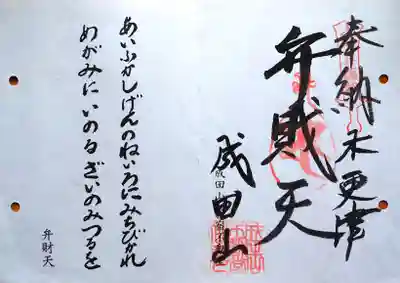 奉納木更津
弁財天
成田山
あいふかしげんのねいろにみちびかれ
めがみにいのるざいのみつるを
弁財天